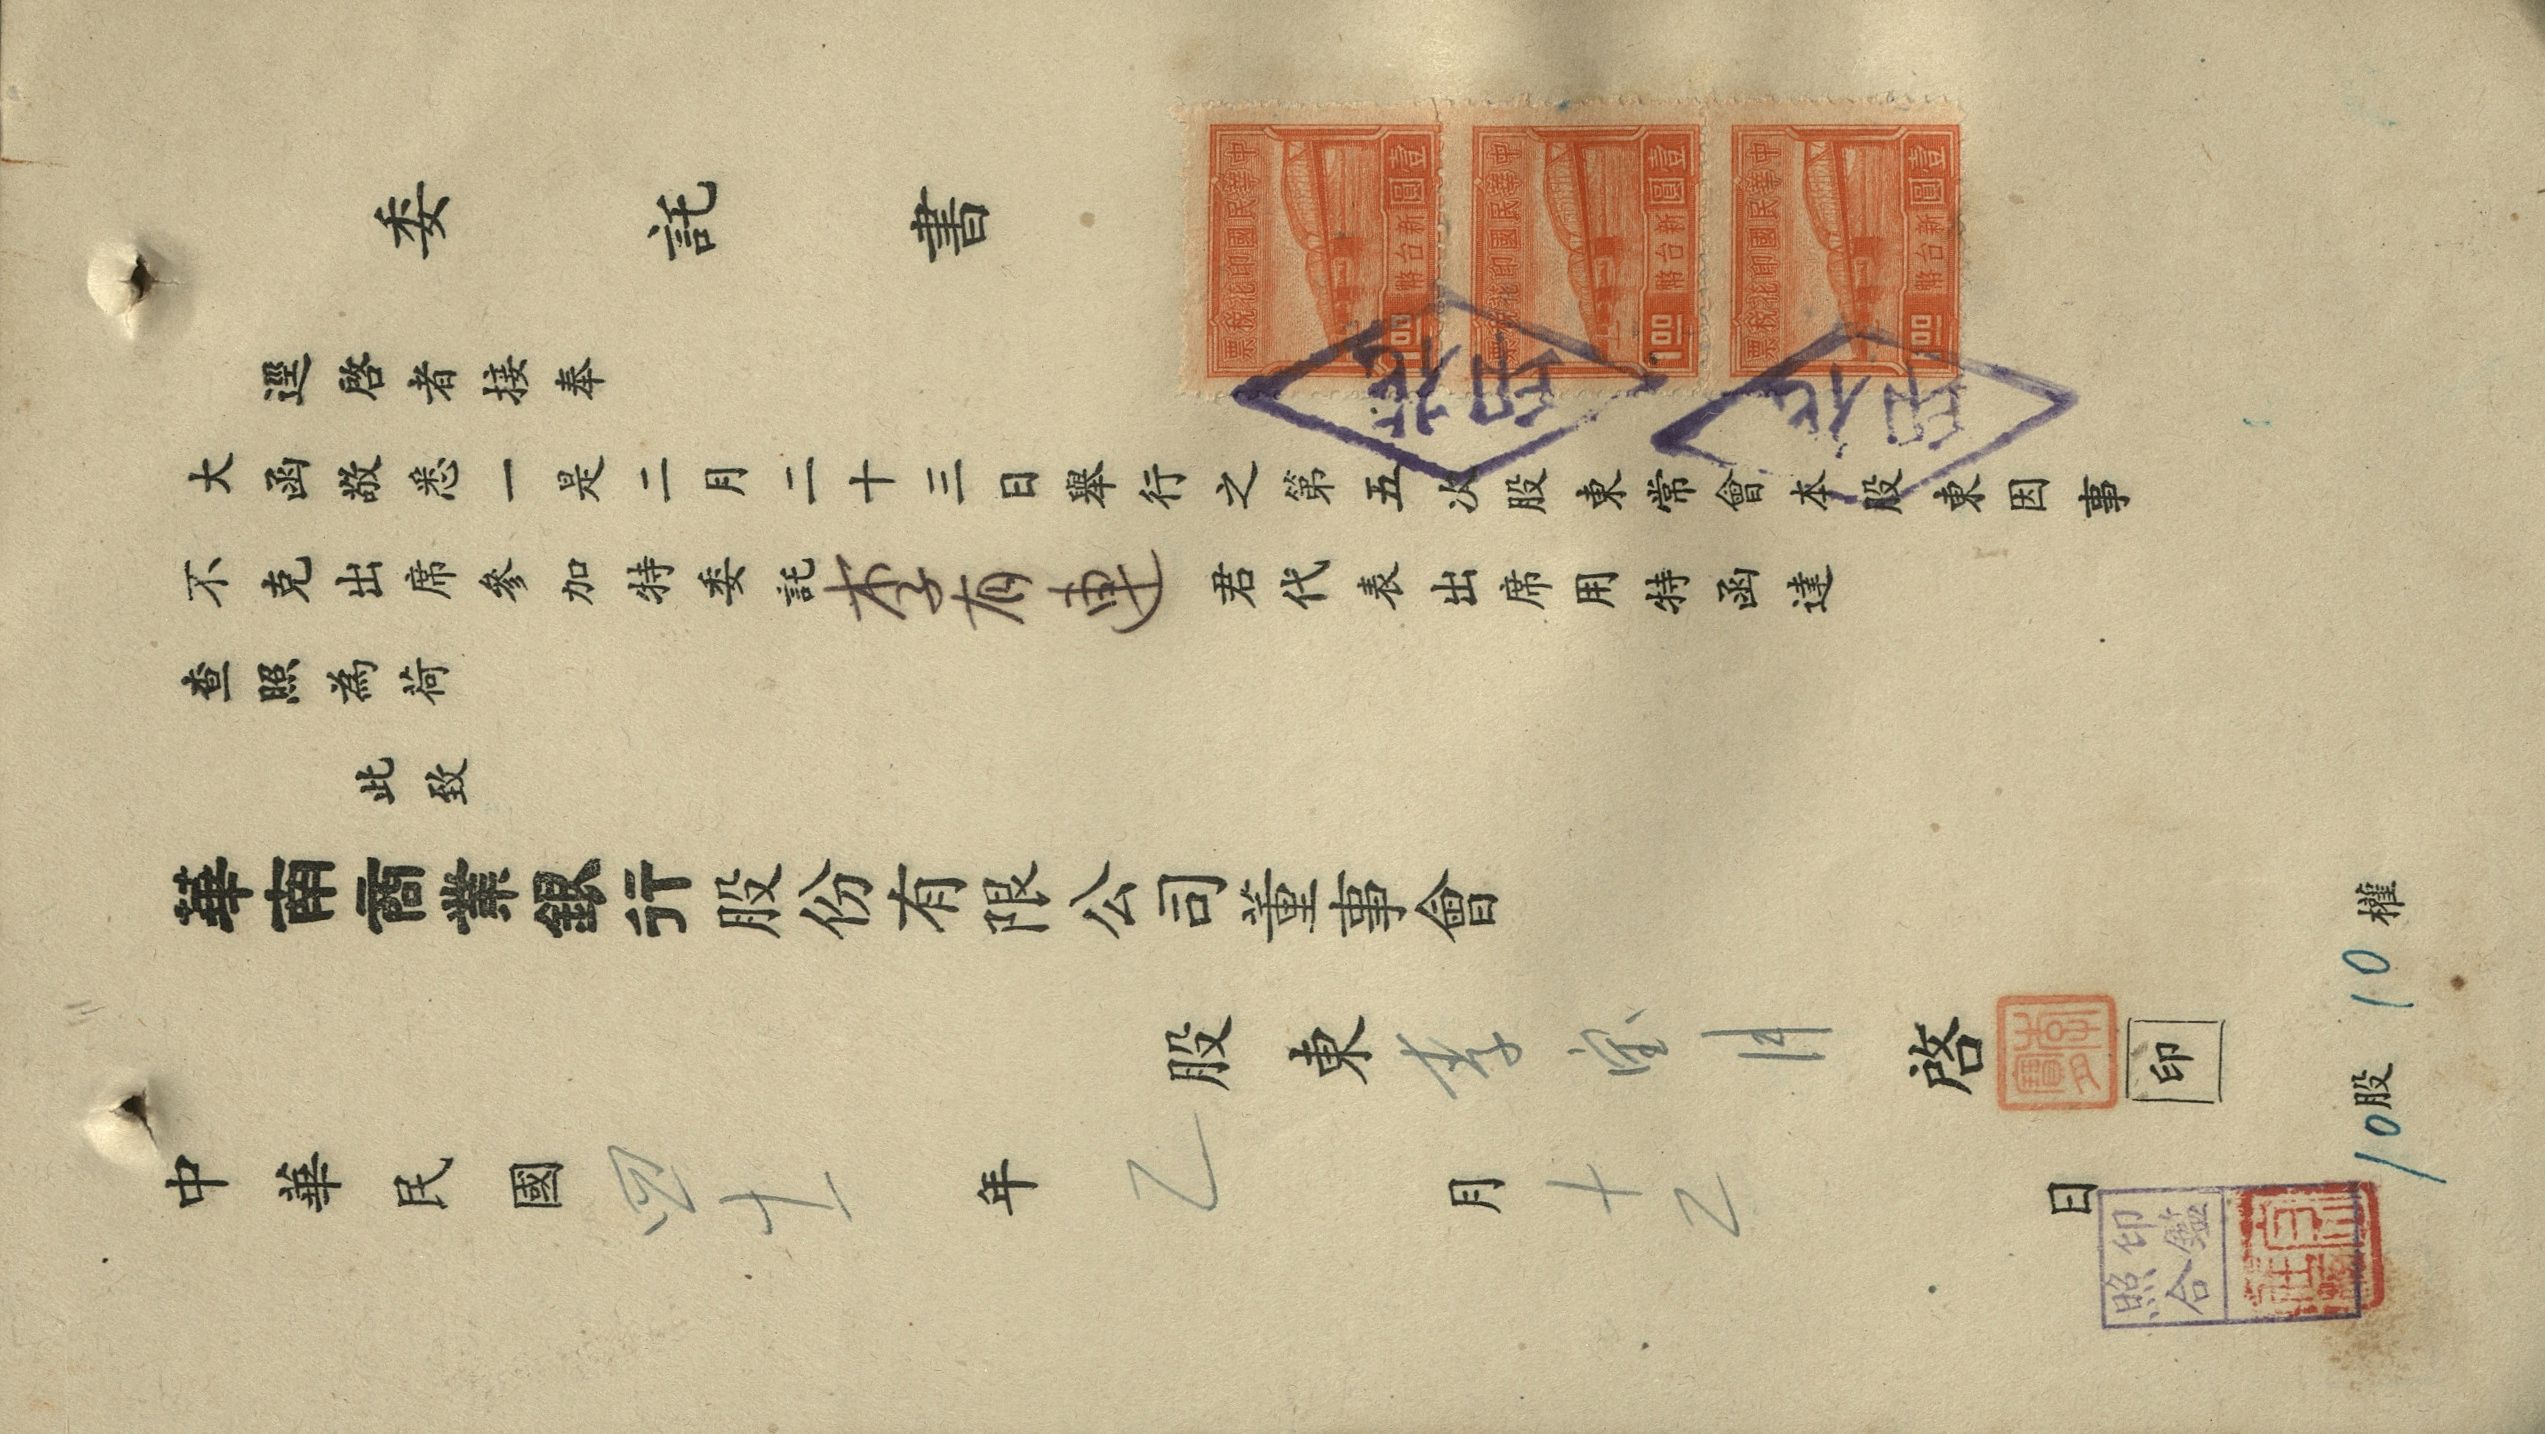 委託書
逕啓者接奉
大函敬悉一是二月二十三日舉行之第五次股東常會本股東因事
不克出席參加特委託李有連君代表出席用特函達
查照為荷
此致
華南商業銀行股份有限公司董事會
股東李寶月啓
印
中華民國四十一年乙月十乙日
10股10權
印鑑
照合
中華民國印花稅票
壹圓
新台幣
1.00
中華民國印花稅票
壹圓
新台幣
1.00
中華民國印花稅票
壹圓
新台幣
1.00